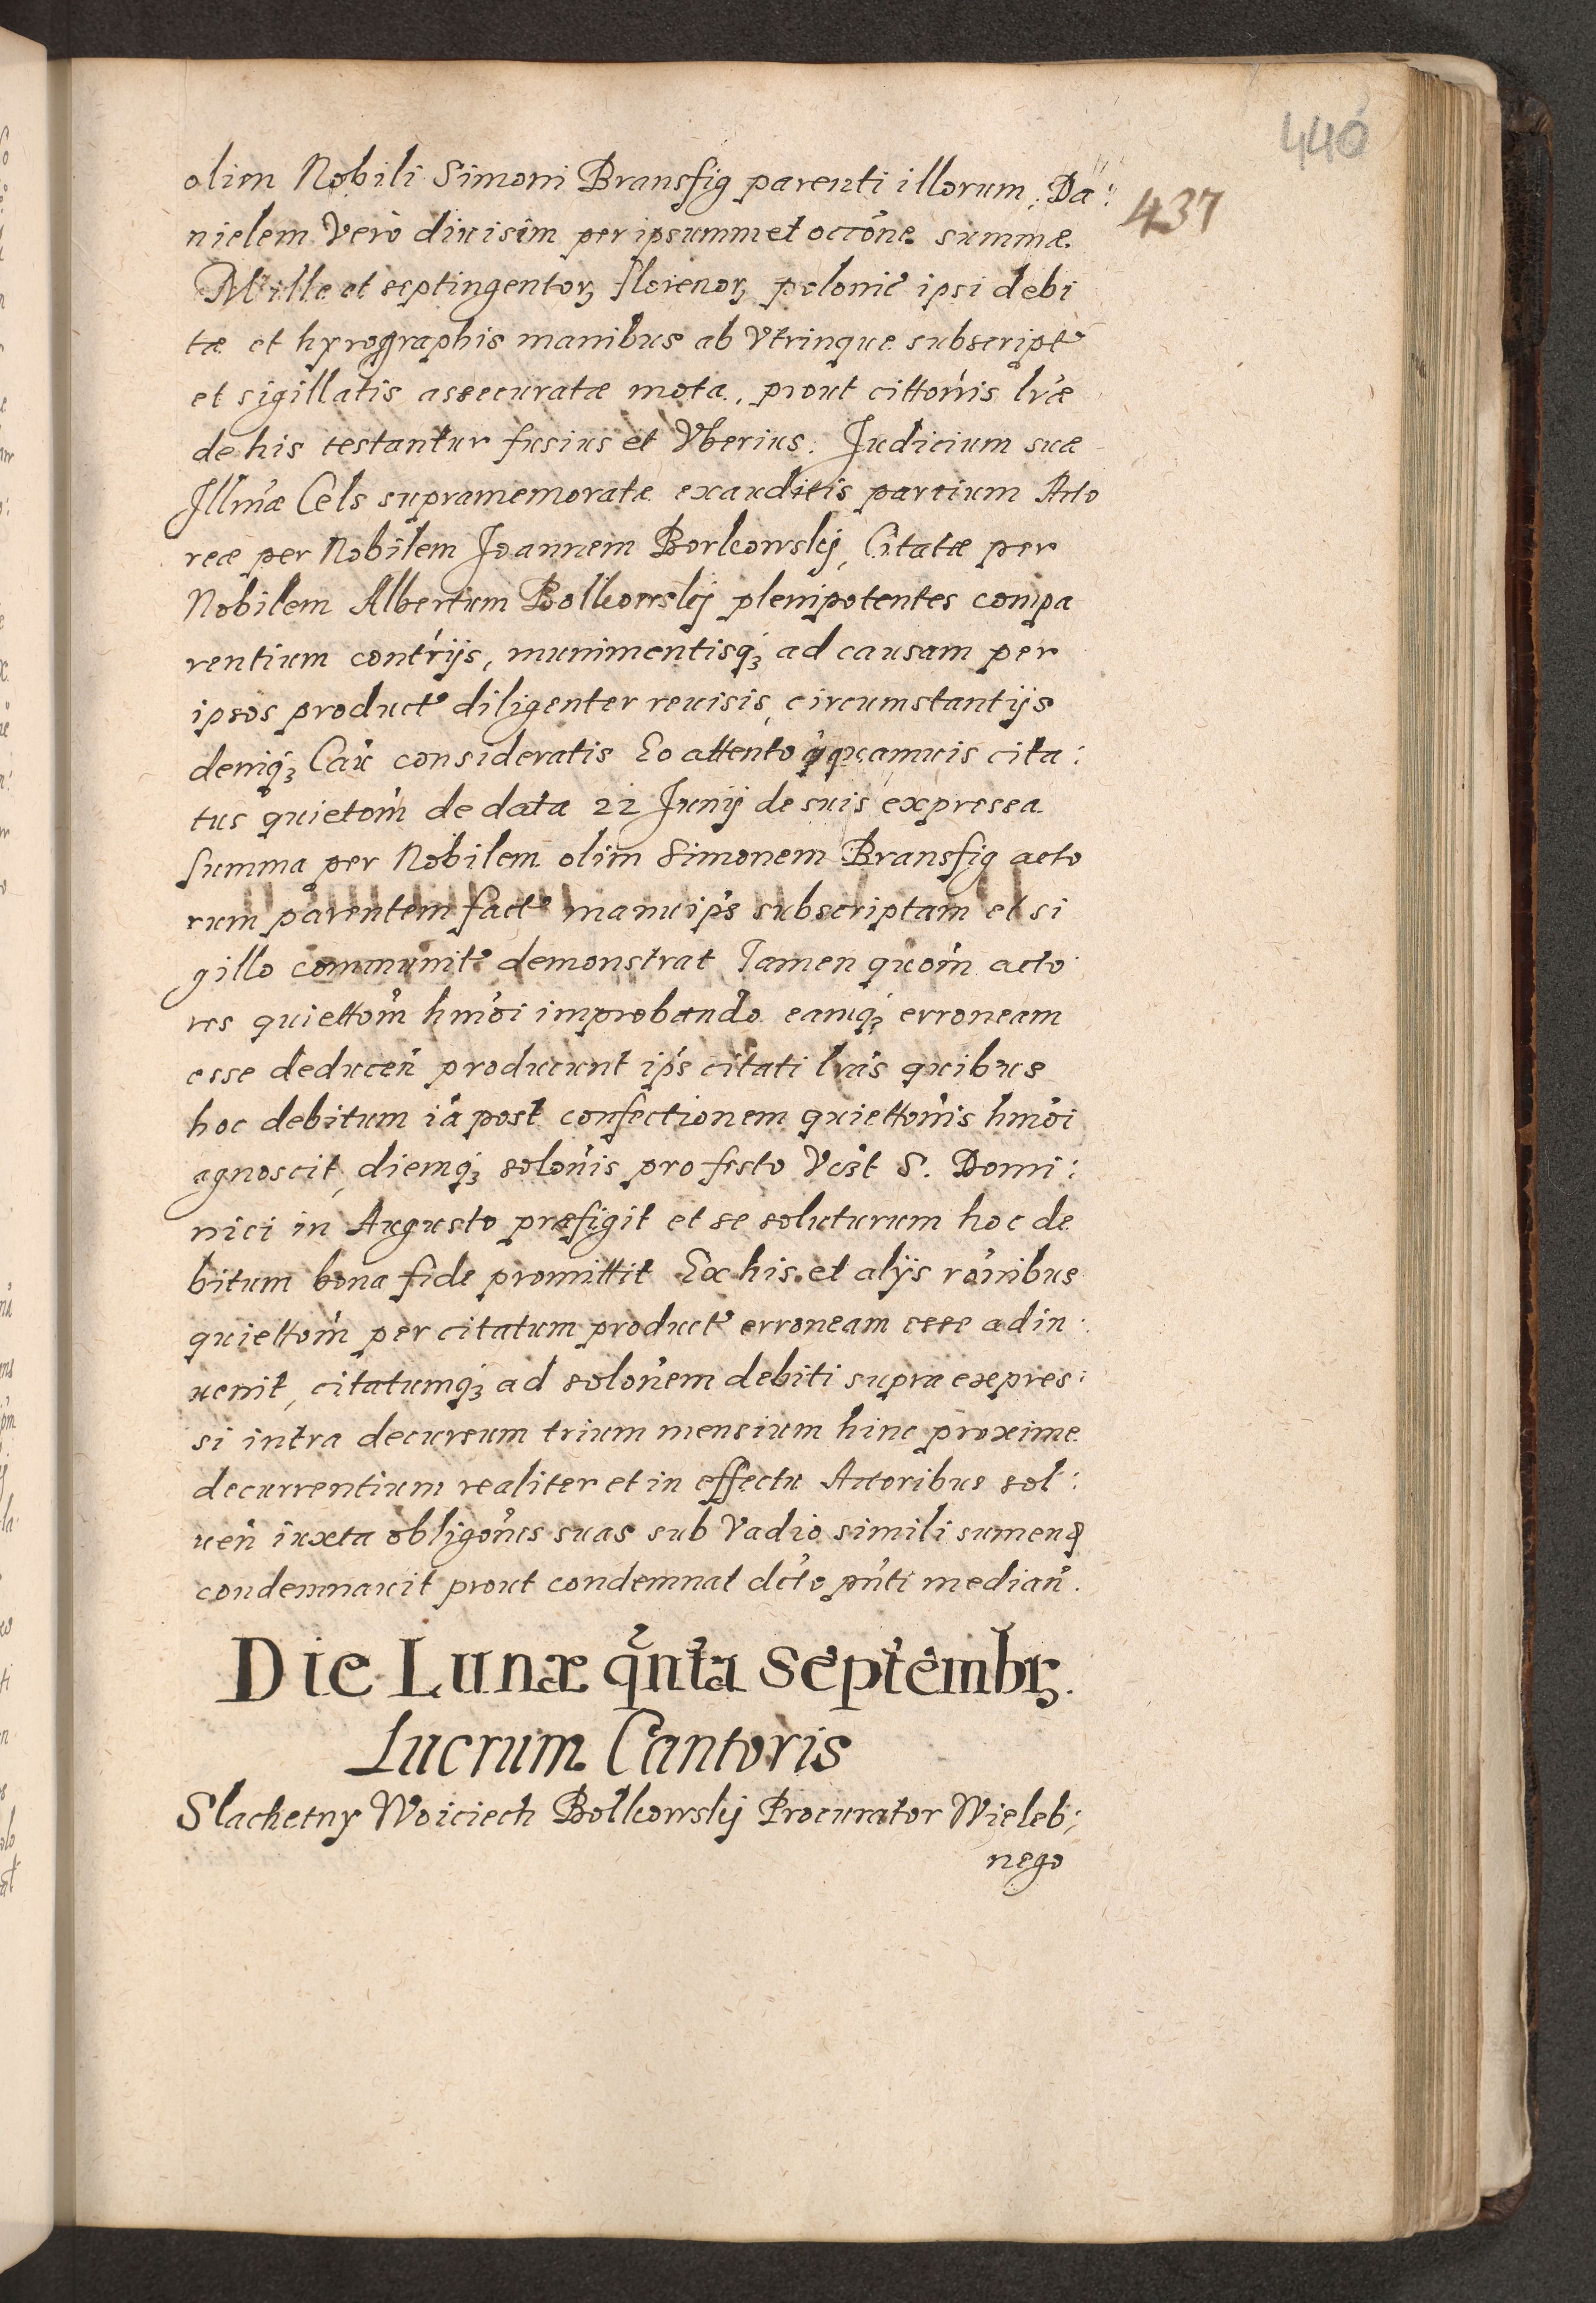 440
437
olim Nobili Simoni Bransfig parenti illorum, Da:
nielem Vero diuisim per ipsummet occõne summæ
Mille et septingentorꝫ florenorꝫ polonic̃ ipsi debi
tæ et hyrographis manibus ab Vtrinque subscript
et sigillatis assecuratæ mota, prout cittõnis lr̃æ
de his testantur fusius et Vberius. Judicium suæ
Illmæ Cels supramemoratæ exauditis partium Acto
reæ per Nobilem Joannem Borkowskij, Citatæ per
Nobilem Albertum Bolkowskij plenipotentes compa
rentium contrijs, munimentisqꝫ ad causam per
ipsos product diligenter reuisis, circumstantijs
deniqꝫ Cau consideratis Eo attento quamuis cita:
tus quietom̃ de data 22 Junij de suis expressa
summa per Nobilem olim Simonem Bransfig acto
rum parentem fact manu ip̃s subscriptam et si
gillo communit demonstrat Tamen quom̃ acto
res quiettom̃ hmõi improbando eamqꝫ erroneam
esse deducen̄ producunt ip̃s citati lr̃as quibus
hoc debitum iã post confectionem quiettom̃is hmõi
agnoscit, diemqꝫ solon̄is pro festo S. Domi:
nici in Augusto præfigit et se soluturum hoc de
bitum bona fide promittit Ex his et alijs rõnibus
quiettom̃ per citatum product erroneam esse adin:
uenit, citatumqꝫ ad solon̄em debiti supra expres:
si intra decursum trium mensium hinc proxime
decurrentium realiter et in effectu Actoribus sol:
uen̄ iuxta obligõnes suas sub Vadio simili sumen
condemnauit prout condemnat dc̃to pñti median̄.
Die Lunæ qũnta Septembrꝫ.
Lucrum Cantoris
Slachetny Woiciech Bolkowskij Procurator Wieleb:
nego